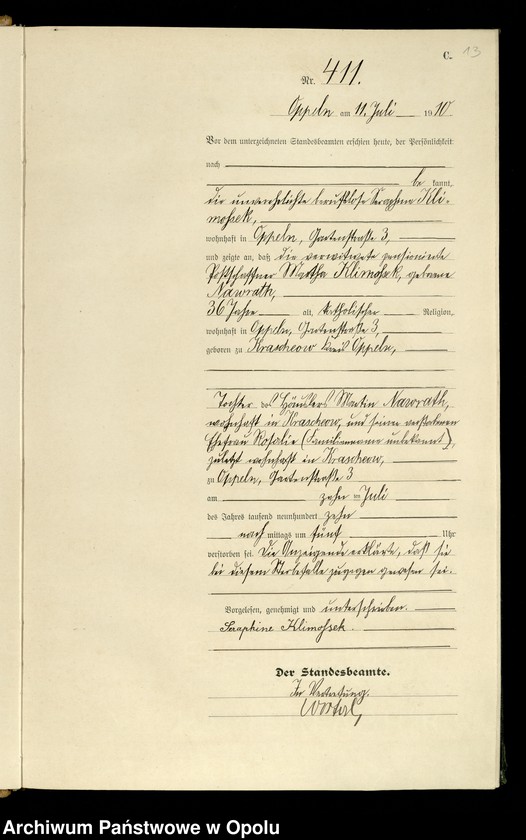 C. 13
Nr. 411.
Oppeln am 11. Juli 1910
Vor dem unterzeichneten Standesbeamten erschien heute, der Persönlichkeit
nach
be kannt,
die unverehelichte berufslose Seraphine Kli-
mossek,
wohnhaft in Oppeln, Gartenstraße 3,
und zeigte an, daß die verwitwete pensionierte
Postschaffner Martha Klimossek, geborene
Nawrath,
36 Jahre alt, katholischer Religion,
wohnhaft in Oppeln, Gartenstraße 3,
geboren zu Krascheow Kreis Oppeln,
Tochter des Häuslers Martin Nawrath,
wohnhaft in Krascheow, und seiner verstorbenen
Ehefrau Rosalie (Familienname unbekannt),
zuletzt wohnhaft in Krascheow,
zu Oppeln, Gartenstraße 3
am zehn ten Juli
des Jahres tausend neunhundert zehn
nach mittags um fünf Uhr
verstorben sei. Die Anzeigende erklärte, daß sie
bei diesem Sterbefalle zugegen gewesen sei.
Vorgelesen, genehmigt und unterschrieben.
Seraphine Klimossek.
Der Standesbeamte.
In Vertretung.
Archiwum Państwowe w Opolu